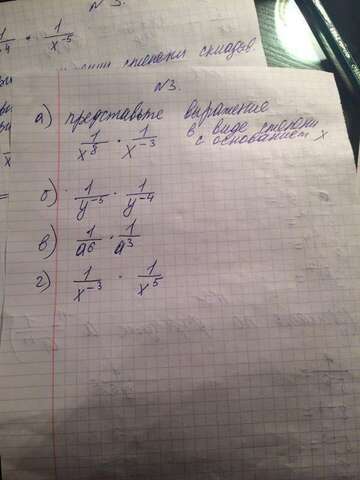 №3.
1/x⁻⁵
степени
№3.
а) представьте выражение
в виде степени
с основанием x
1/x⁸ · 1/x⁻³
б) 1/y⁻⁵ · 1/y⁻⁴
в) 1/a⁶ · 1/a³
г) 1/x⁻³ · 1/x⁵